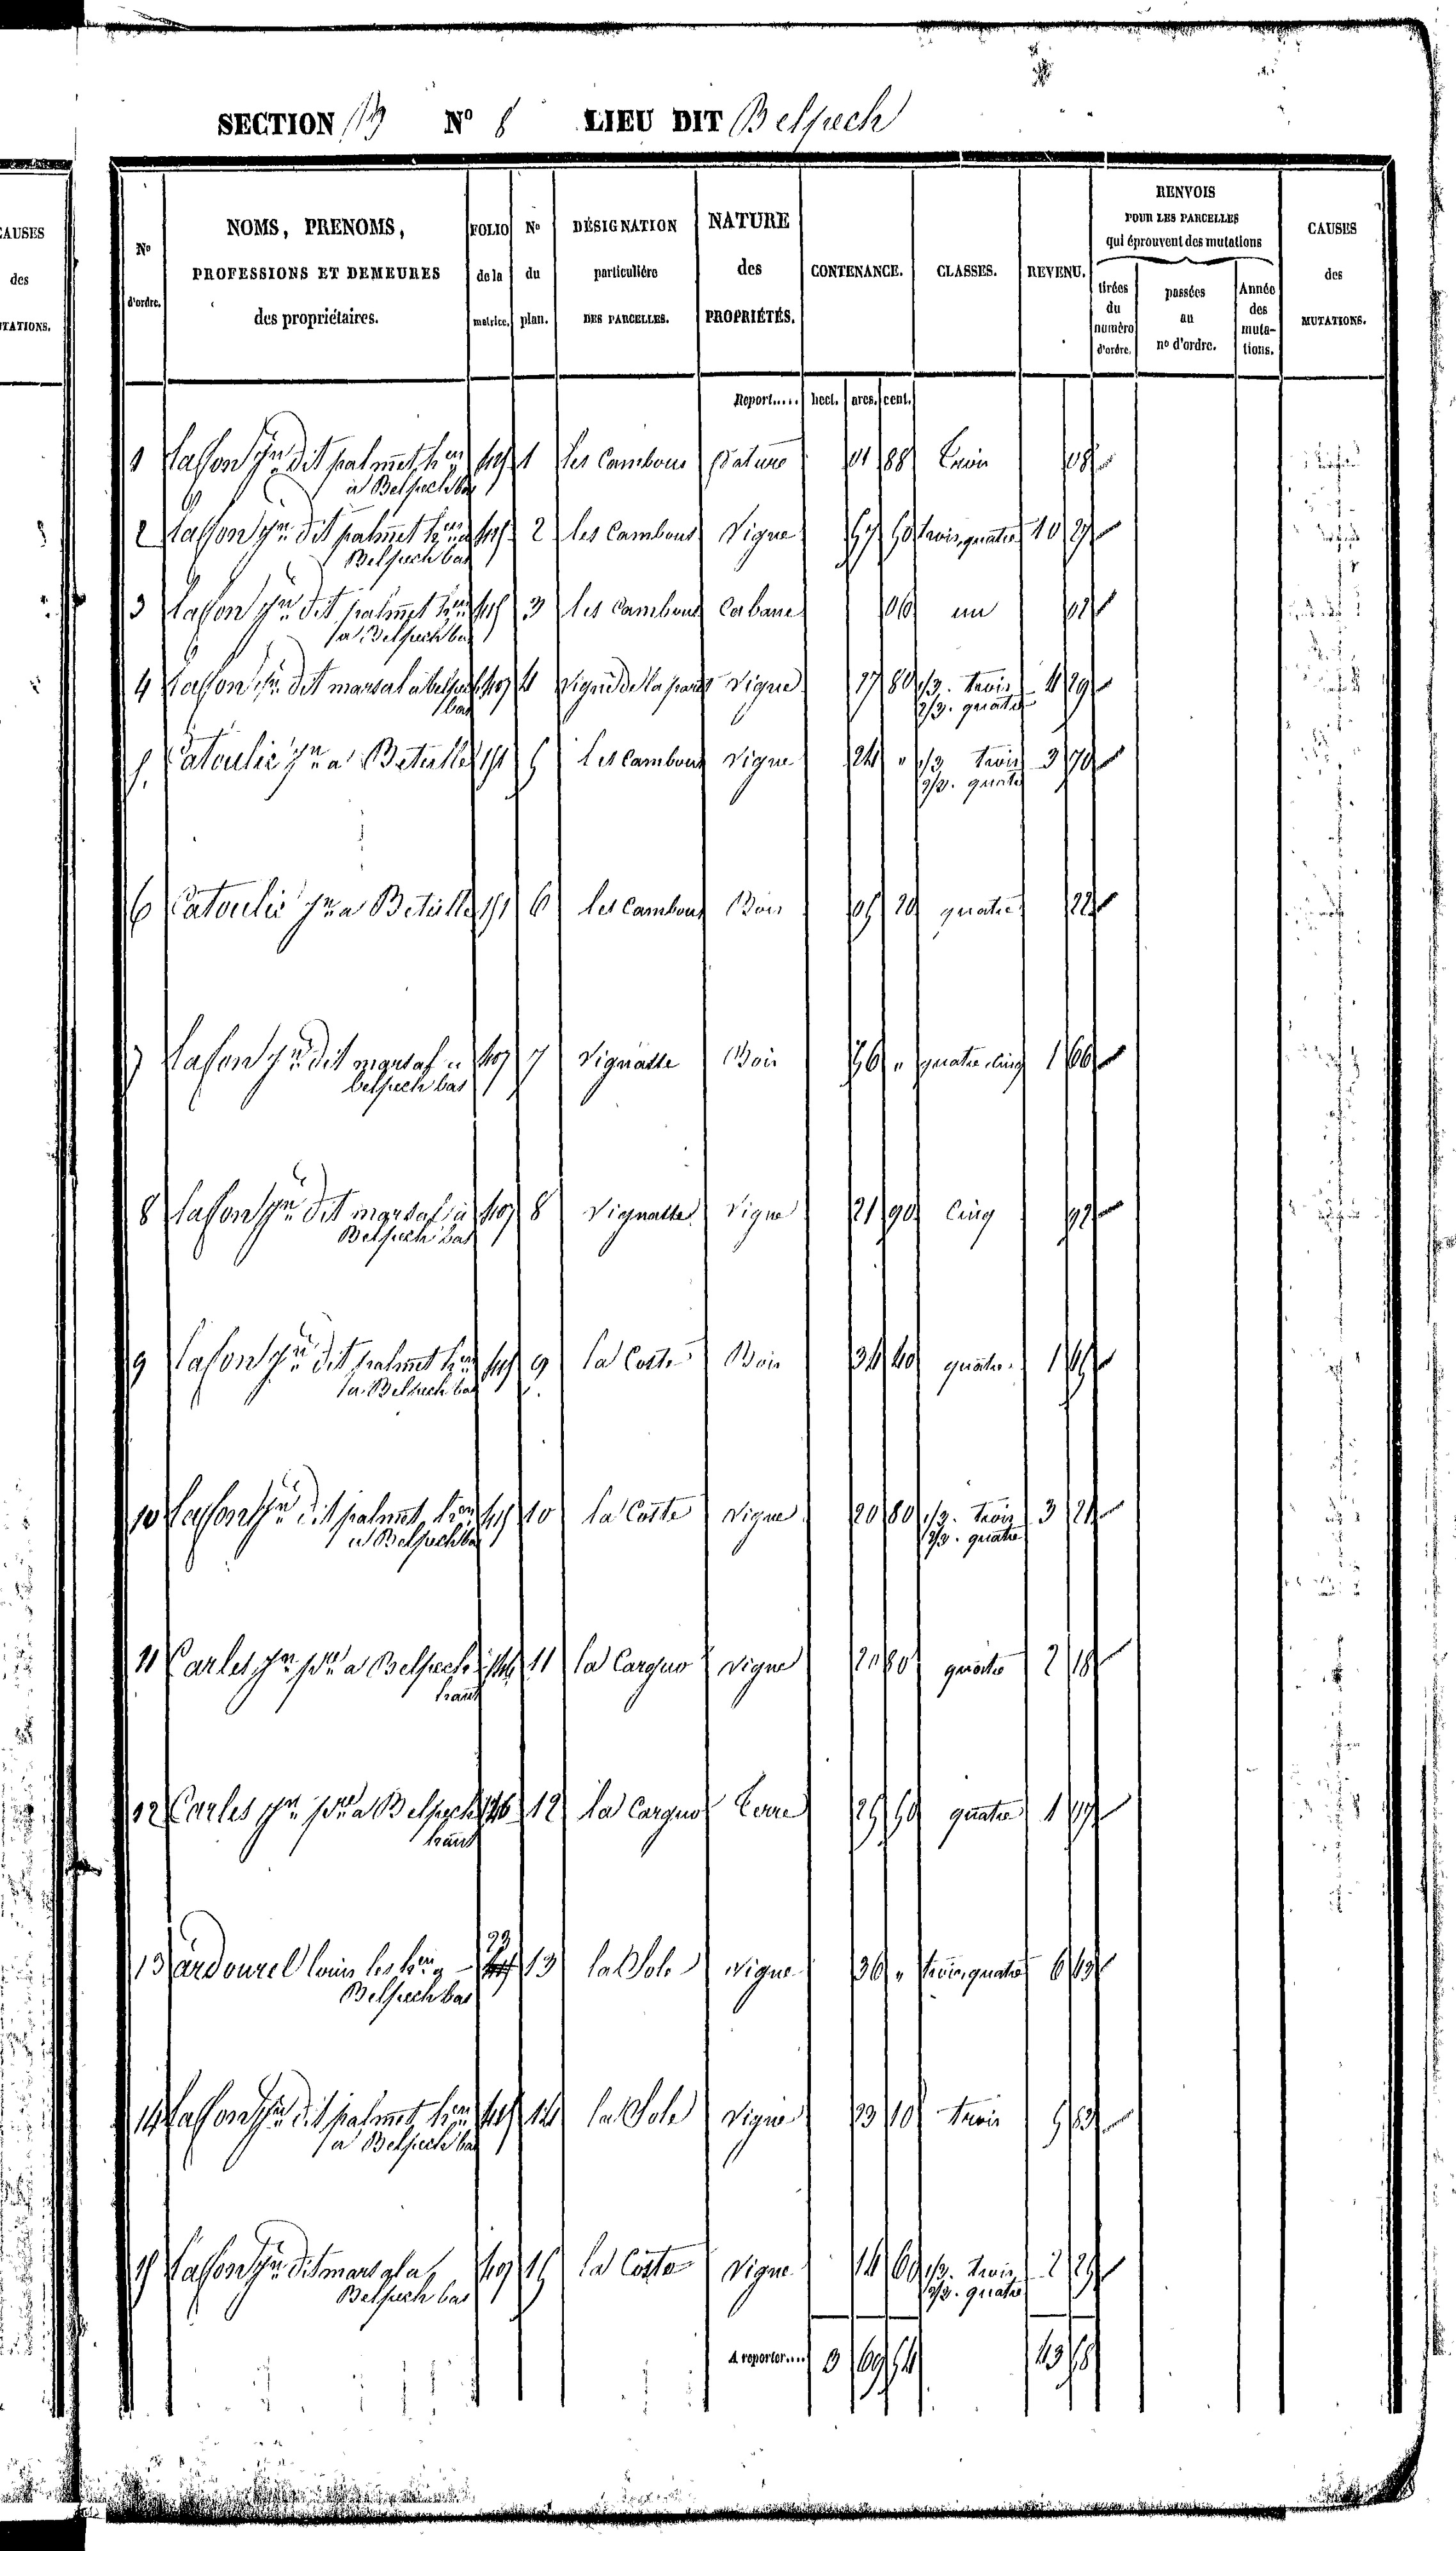 SECTION B N° 8 LIEU DIT Belpech
CAUSES
des
MUTATIONS.
N°
d'ordre.
NOMS, PRENOMS,
PROFESSIONS ET DEMEURES
des propriétaires.
FOLIO
de la
matrice.
N°
du
plan.
DÉSIGNATION
particulière
DES PARCELLES.
NATURE
des
PROPRIÉTÉS.
CONTENANCE.
CLASSES.
REVENU.
RENVOIS
POUR LES PARCELLES
qui éprouvent des mutations
tirées
du
numéro
d'ordre.
passées
au
no d'ordre.
Année
des
muta-
tions.
CAUSES
des
MUTATIONS.
Report..... hect. ares. cent.
1 Lafon Jn dit palmet hers 1 les Cambous Pature 01 88 trois 08
à Belpech bas
2 Lafon Jn dit palmet hers a 2 les Cambous Vigne trois, quatre 10
Belpech bas
3 Lafon Jn dit palmet hers 3 les Cambous Cabane 06 un
a Belpech bas
4 Lafon Jn dit marsal a belpech 4 Vigne 27 80 1/3. trois 4 29
bas 2/3. quatre
5. Jn a Beteille 151 5 les Cambous Vigne 24 " 1/3 trois 3 70
2/3. quatre
6 Jn a Beteille 151 6 les Cambous Bois 05 20 quatre 22
7 Lafon Jn dit marsal a 7 Vignasse Bois " quatre, cinq 1 66
belpech bas
8 Lafon Jn dit marsal a 8 Vignasse Vigne 21 90 Cinq 92
Belpech bas
9 Lafon Jn dit palmet hers 9 la Coste Bois 34 40 quatre 1 45
a Belpech bas
10 Lafon Jn dit palmet hers 10 la Coste Vigne 20 80 1/3. trois 3 21
a Belpech bas 2/3. quatre
11 Carles Jn a Belpech 11 la Carguo Vigne 20 80 quatre 2 18
haut
12 Carles Jn a Belpech 12 la Carguo terre quatre 1
haut
13 ardourel louis les hers a 13 la Sole Vigne 36 " trois, quatre 6
Belpech bas
14 Lafon Jn dit palmet hers 14 la Sole Vigne 23 10 trois 5
a Belpech bas
15 Lafon Jn dit marsal a 15 la Coste Vigne 14 60 1/3. trois 2
Belpech bas 2/3. quatre
A reporter.... 3 69 54 43